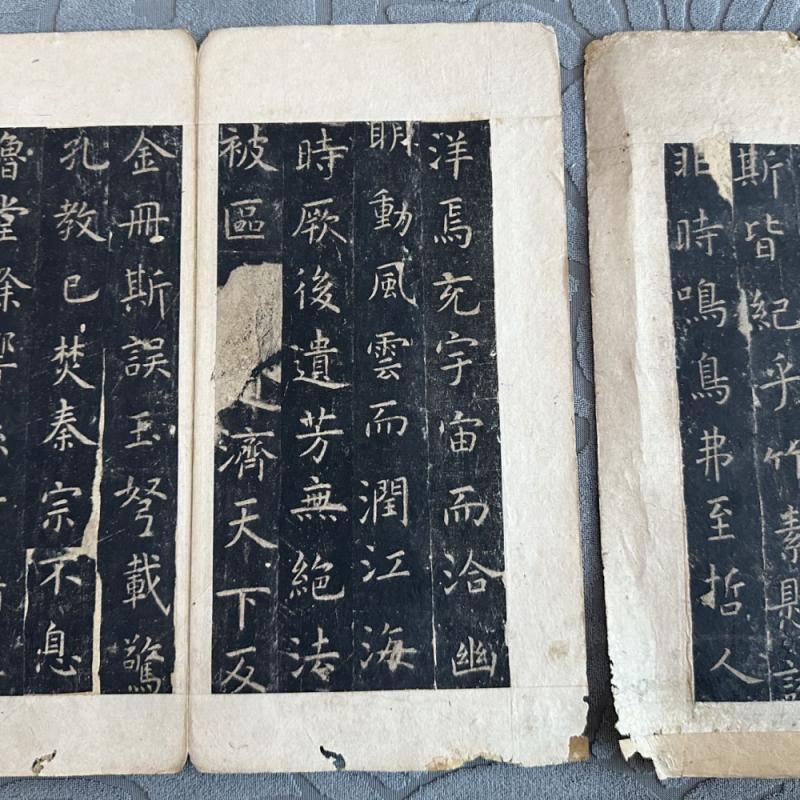 斯皆紀乎竹素懸諸
非時鳴鳥弗至哲人
洋焉充宇宙而洽幽
明動風雲而潤江海
時厥後遺芳無絕法
被區濟天下及
金冊斯誤玉弩載驚
孔教已焚秦宗不息
魯堂餘響